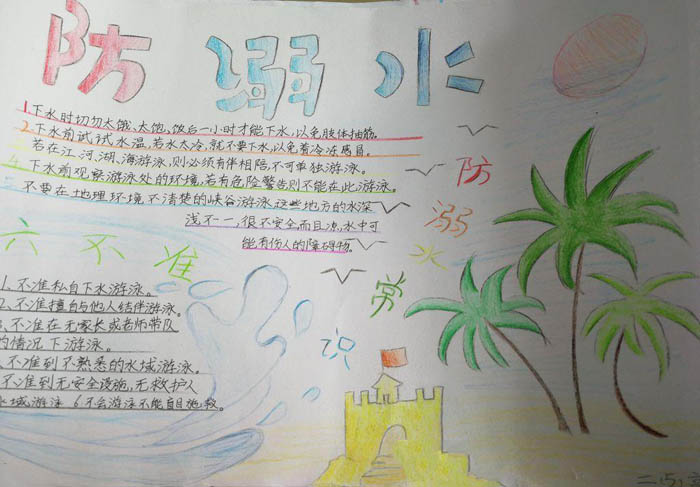 防溺水
1、下水时切勿太饿、太饱,饭后一小时才能下水,以免肢体抽筋。
2、下水前试试水温,若水太冷,就不要下水,以免着冷冻感冒。
若在江、河、湖、海游泳,则必须有伴相陪,不可单独游泳。
下水前观察游泳处的环境,若有危险警告则不能在此游泳。
不要在地理环境不清楚的峡谷游泳这些地方的水深
浅不一,很不安全而且凉,水中可
能有伤人的障碍物。
防溺水常识
六不准
1、不准私自下水游泳。
2、不准擅自与他人结伴游泳。
不准在无家长或老师带队
的情况下游泳。
不准到不熟悉的水域游泳。
不准到无安全设施,无救护人
水域游泳 6不会游泳不能盲目施救。